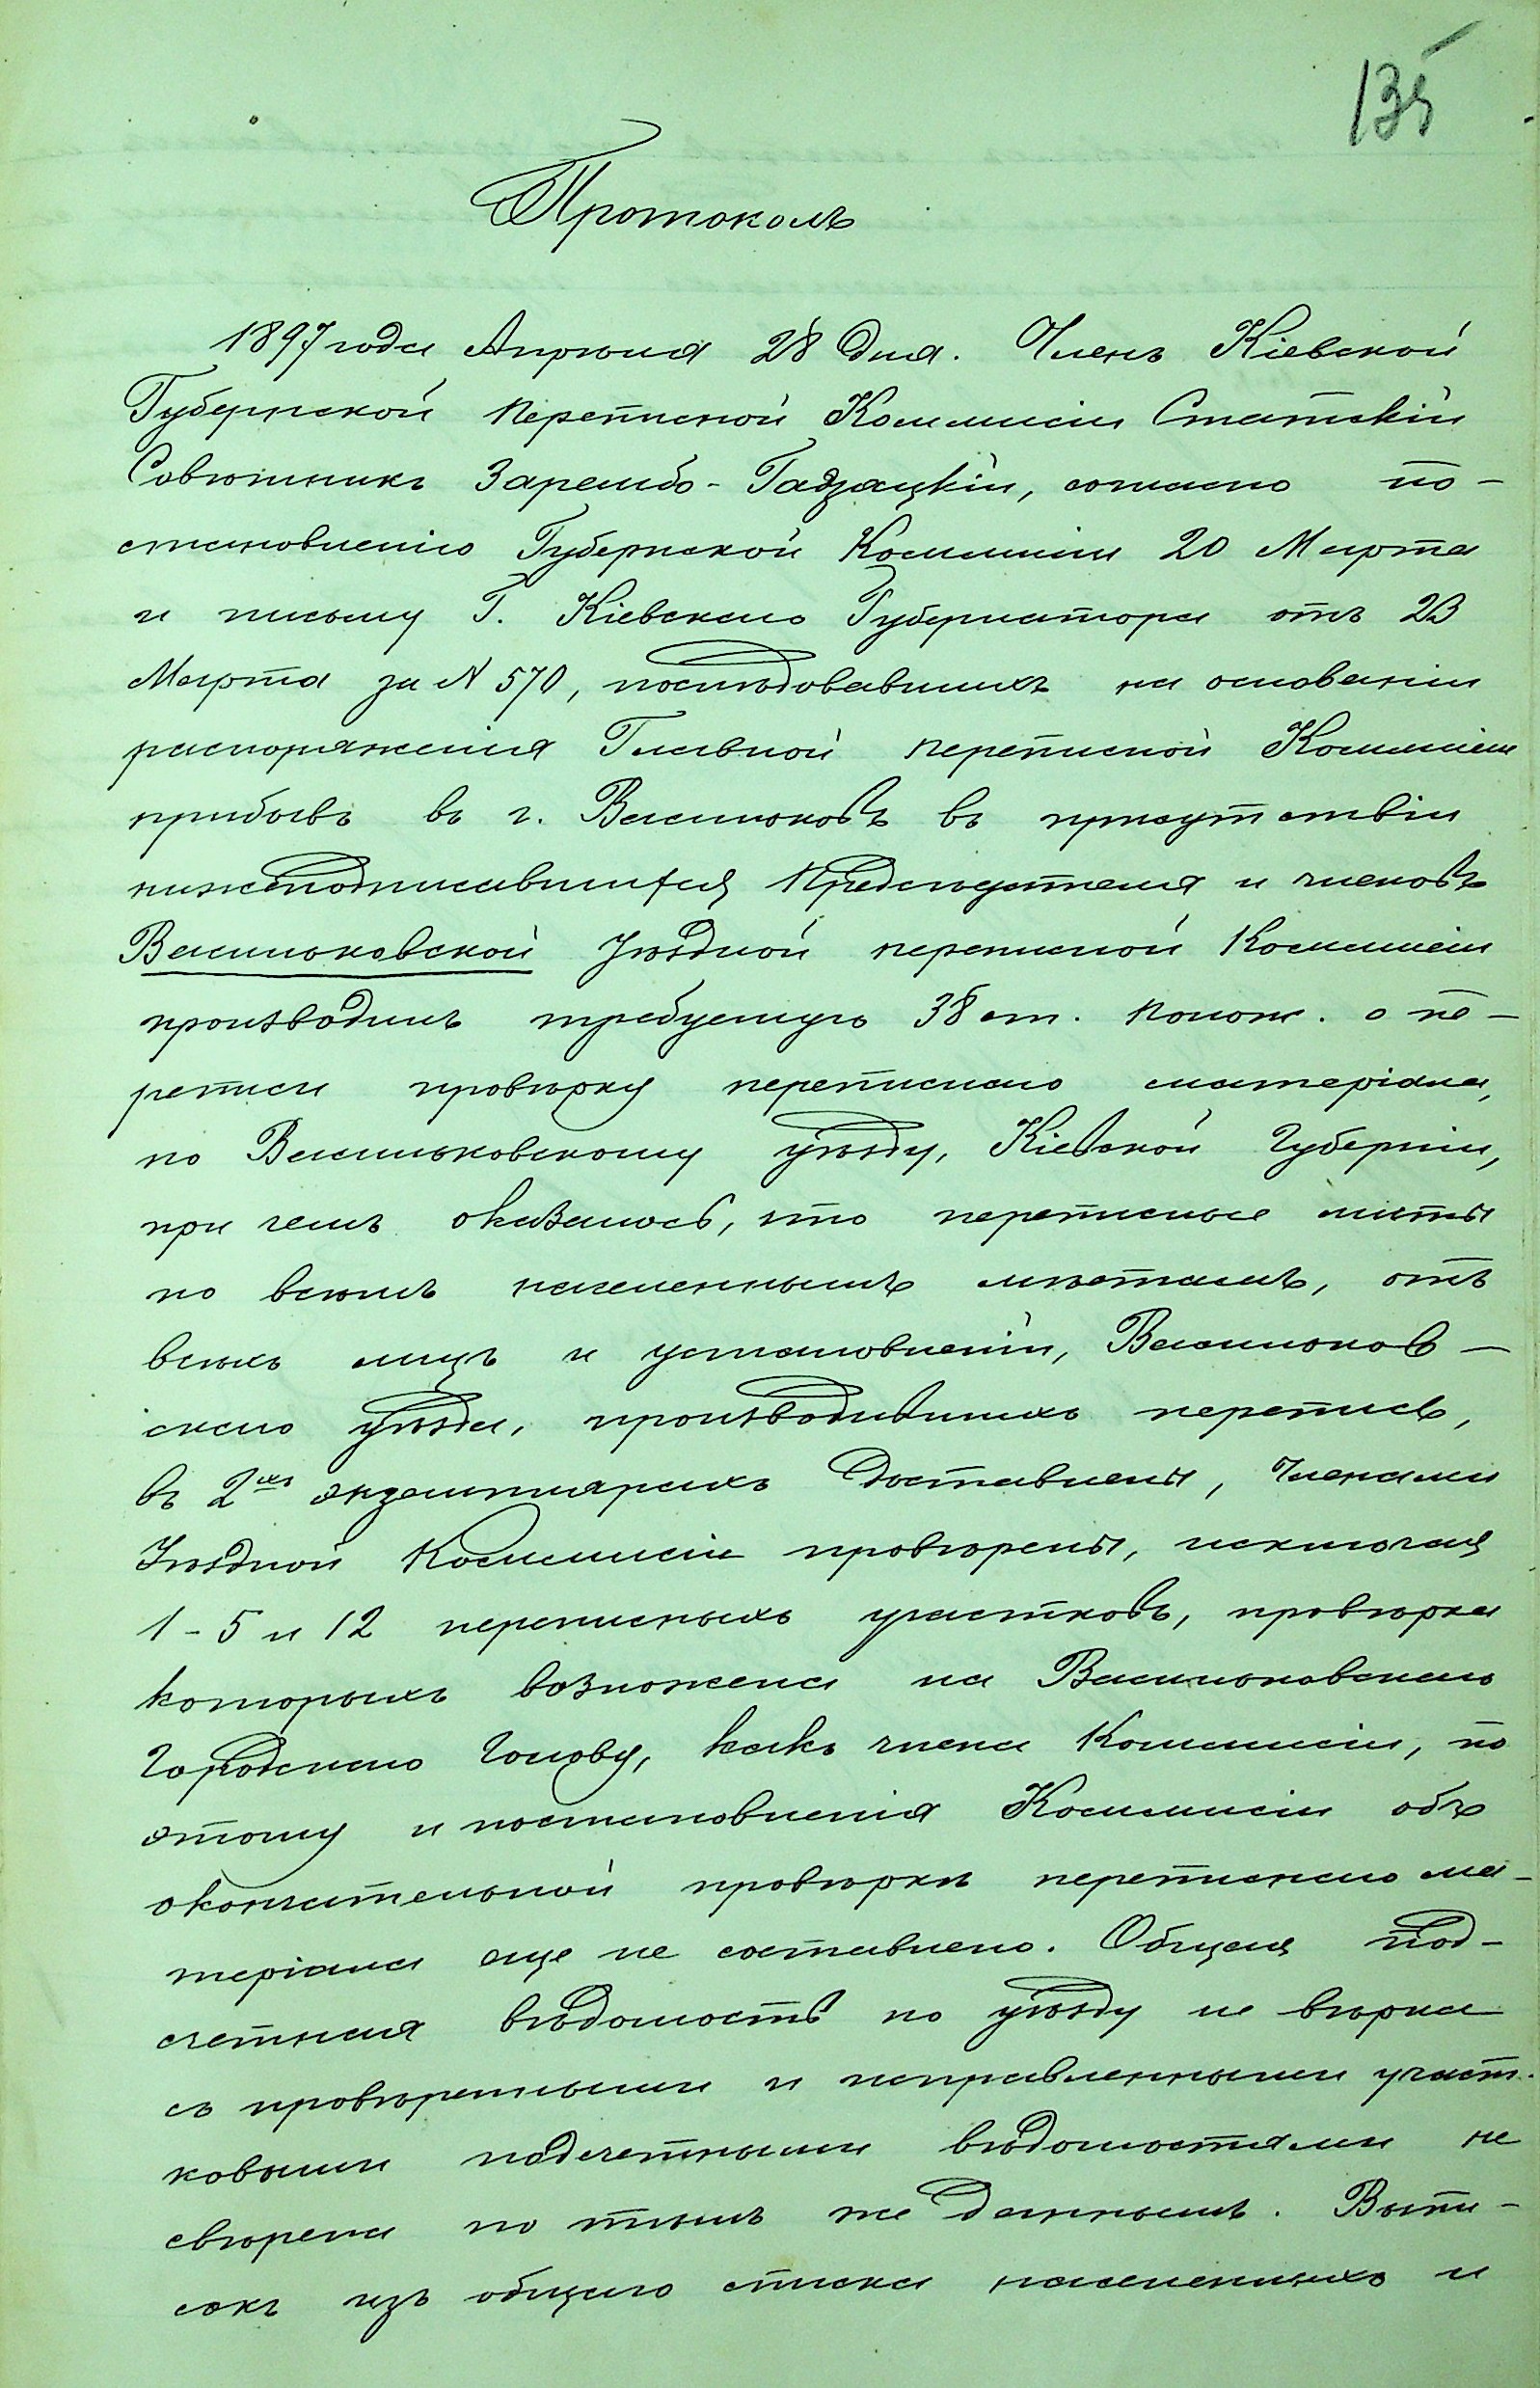 135
Протоколъ
1897 года Апрѣля 28 дня. Членъ Кіевской
Губернской Переписной Коммисіи Статскій
Совѣтникъ Зарембо-Гадзяцкій, согласно по-
становленію Губернской Коммисіи 20 Марта
и письму Г. Кіевскаго Губернатора отъ 23
Марта за N 570, послѣдовавшихъ на основаніи
распоряженія Главной Переписной Коммисіи
прибывъ въ г. Васильковъ въ присутствіи
нижеподписавшихся Предсѣдателя и членовъ
Васильковской Уѣздной переписной Коммисіи
производилъ требуемую 38 ст. Полож. о пе-
реписи провѣрку переписнаго матеріала,
по Васильковскому уѣзду, Кіевской Губерніи,
при чемъ оказалось, что переписные листы
по всѣмъ населеннымъ мѣстамъ, отъ
всѣхъ лицъ и установленій, Васильков-
скаго уѣзда, производившихъ перепись,
въ 2хъ экземплярахъ доставлены, Членами
Уѣздной Коммисіи провѣрены, исключая
1-5 и 12 переписныхъ участковъ, провѣрка
которыхъ возложена на Васильковскаго
Городскаго Голову, какъ члена Коммисіи, по
этому и постановленія Коммисіи объ
окончательной провѣркѣ переписнаго ма-
теріала еще не составлено. Общая под-
счетная вѣдомость по уѣзду не вѣрна
съ провѣренными и исправленными участ-
ковыми подсчетными вѣдомостями не
свѣрена по тѣмъ же даннымъ. Выпи-
сокъ изъ общаго списка населенныхъ и